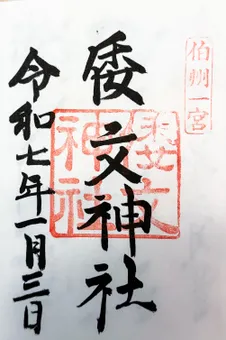 伯州一宮
倭文神社
令和七年一月三日